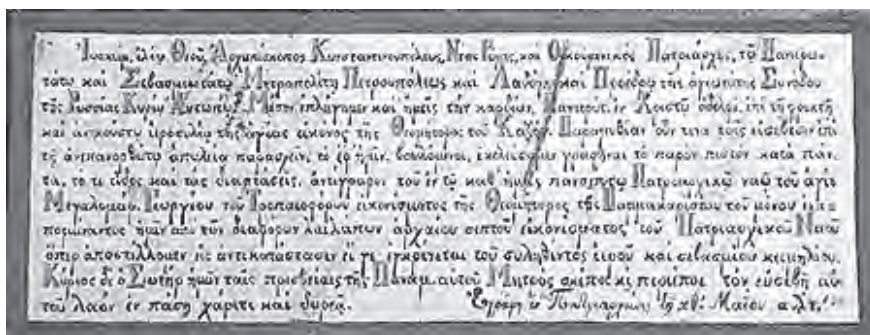 Ἰωακεὶμ, ἐλέῳ Θεοῦ, Ἀρχιεπίσκοπος Κωνσταντινουπόλεως, Νέας Ῥώμης, καὶ Οἰκουμενικὸς Πατριάρχης, τῷ Πανιερω-
τάτῳ καὶ Σεβασμιωτάτῳ Μητροπολίτῃ Πετρουπόλεως καὶ Λαδόγης καὶ Προέδρῳ τῆς ἁγιωτάτης Συνόδου
τῆς Ῥωσσίας Κυρίῳ Ἀντωνίῳ. ἐπλάγημεν καὶ ἡμεῖς τὴν καρδίαν, ἐν Χριστῷ ἀδελφὲ, ἐπὶ τῇ φρικτῇ
καὶ ἀνηκούστῳ ἱεροσυλίᾳ τῆς ἁγίας εἰκόνος τῆς Θεομήτορος τοῦ Καζάν. Παραμυθίαν οὖν τινα τοῖς εὐσεβέσιν ἐπὶ
τῇ ἀνεπανορθώτῳ ἀπωλείᾳ παρασχεῖν, τὸ ἐφ' ἡμῖν, βουλόμενοι, ἐκελεύσαμεν γραφῆναι τὸ παρὸν πιστὸν κατὰ πάν-
τα, τό τε εἶδος καὶ τὰς διαστάσεις, ἀντίγραφον τοῦ ἐν τῷ καθ' ἡμᾶς πανσέπτῳ Πατριαρχικῷ ναῷ τοῦ ἁγίου
Μεγαλομάρ. Γεωργίου τοῦ Τροπαιοφόρου εἰκονίσματος τῆς Θεομήτορος τῆς Παμμακαρίστου τοῦ μόνου
ἡμῖν ἐκ τῶν διαφόρων λαιλάπων ἀρχαίου σεπτοῦ εἰκονίσματος τοῦ Πατριαρχικοῦ Ναοῦ
ὅπερ ἀποστέλλομεν εἰς ἀντικατάστασιν τοῦ συληθέντος ἱεροῦ καὶ σεβασμίου κειμηλίου.
Κύριος δὲ ὁ Σωτὴρ ἡμῶν ταῖς πρεσβείαις τῆς Παναμ. αὐτοῦ Μητρὸς σκέποι καὶ περιέποι τὸν εὐσεβῆ αὐ-
τοῦ λαὸν ἐν πάσῃ χάριτι καὶ δωρεᾷ. Μαΐου